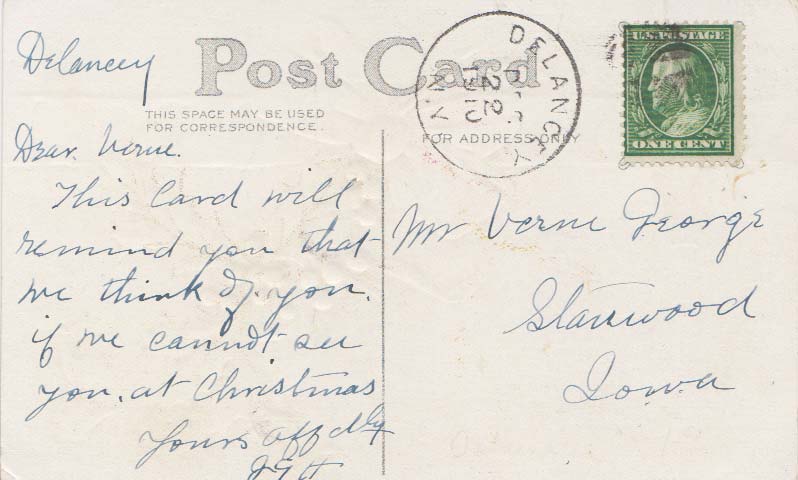 Delancey
Post Card
THIS SPACE MAY BE USED
FOR CORRESPONDENCE.
FOR ADDRESS ONLY
DELANCEY
22
N.Y.
U.S. POSTAGE
ONE CENT
Dear Verne.
This Card will
remind you that
we think of you.
if we cannot see
you, at Christmas
Yours affctly
Mr Verne George
Stanwood
Iowa